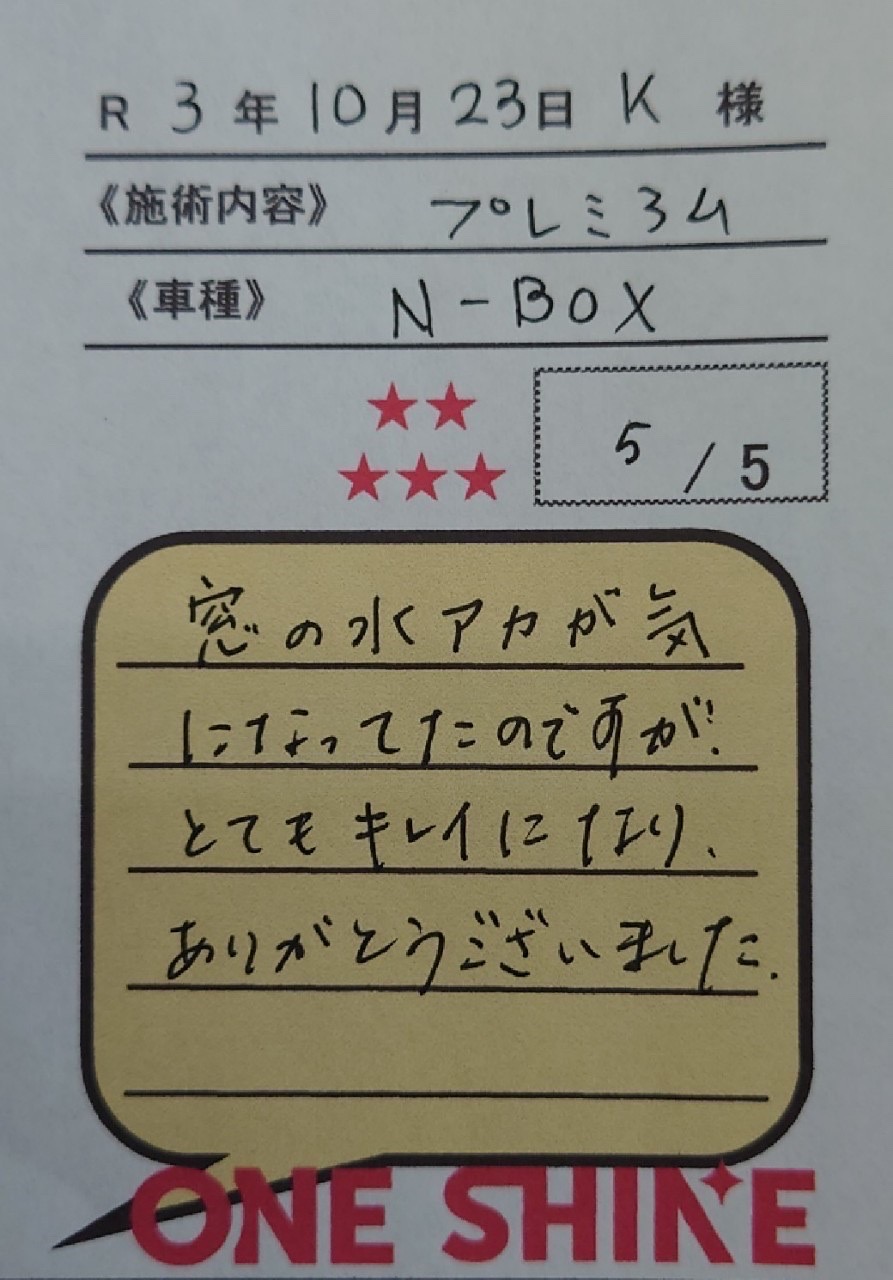 R 3年10月23日 K 様
《施術内容》 プレミアム
《車種》 N-BOX
★★
★★★
5/5
窓の水アカが気
になってたのですが、
とてもキレイになり、
ありがとうございました。
ONE SHINE